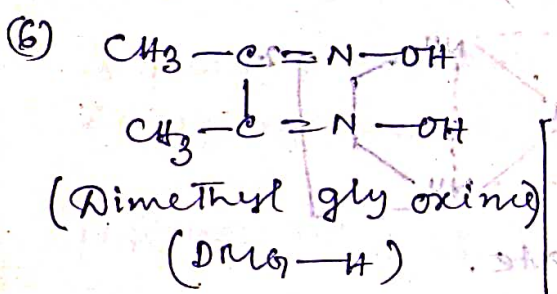 ⑥ CH3 — C = N — OH
|
CH3 — C = N — OH
(Dimethyl gly oxime)
(DMG — H)